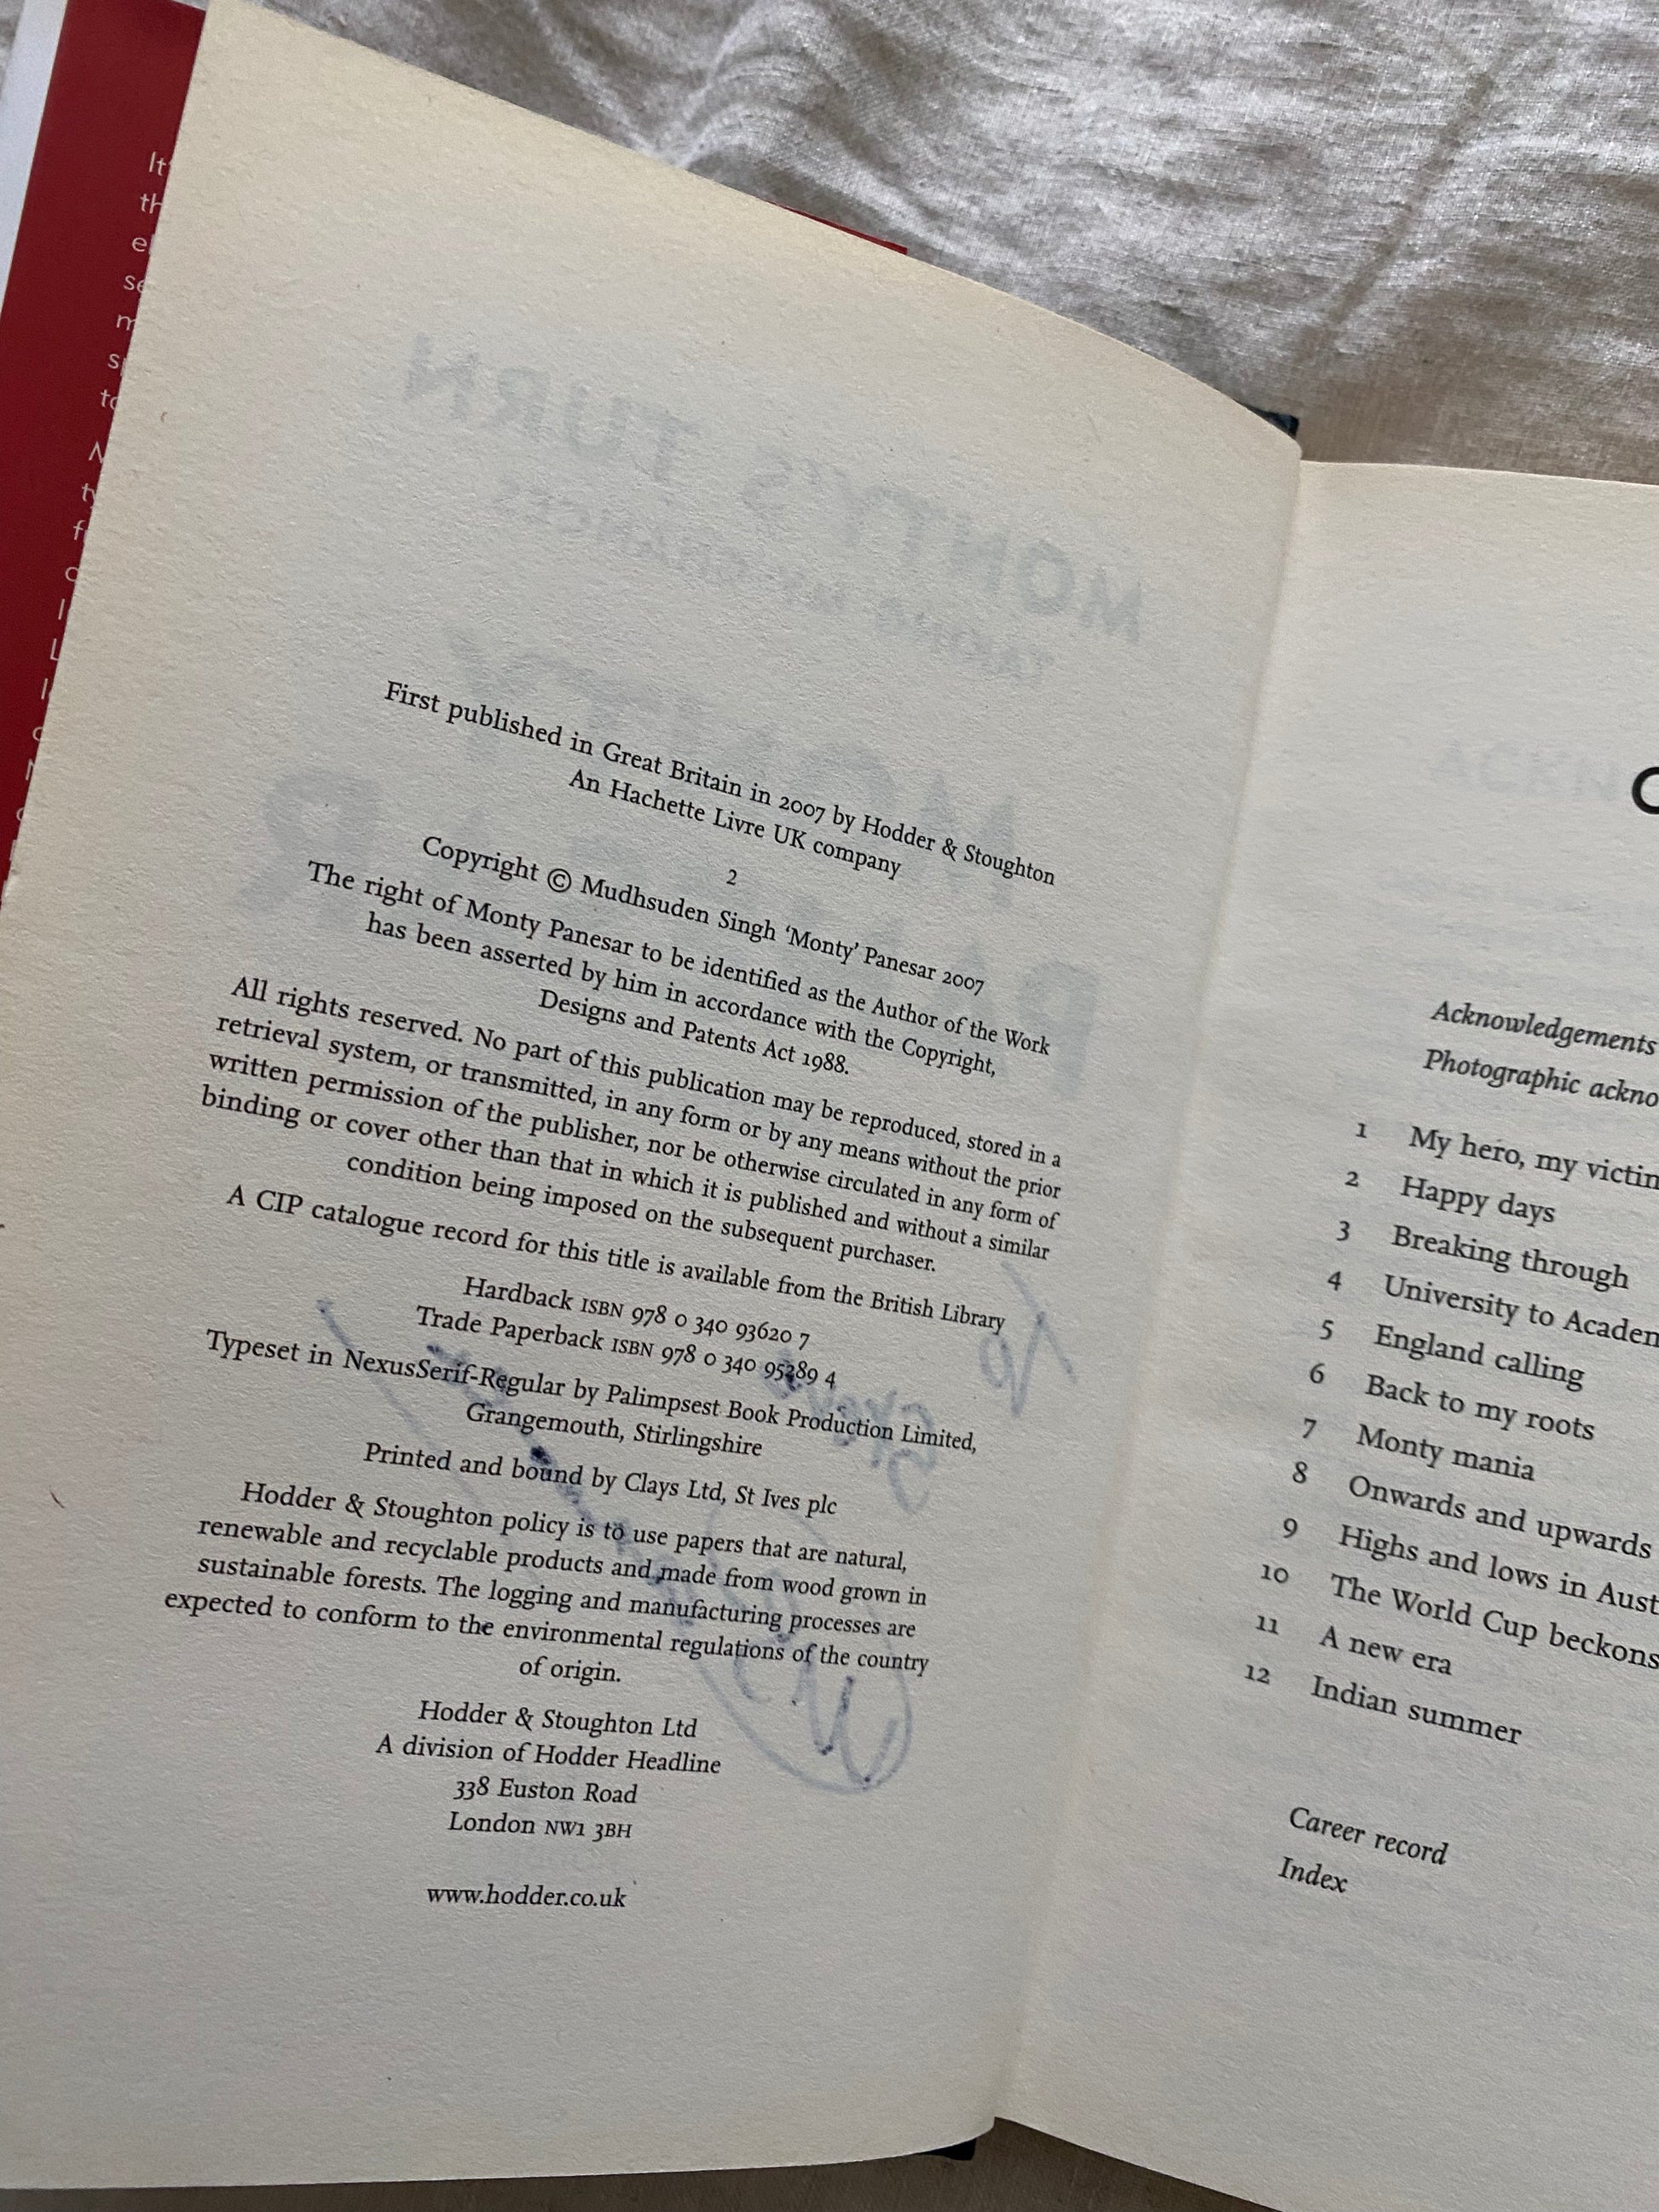 First published in Great Britain in 2007 by Hodder & Stoughton
An Hachette Livre UK company
2
Copyright © Mudhsuden Singh ‘Monty’ Panesar 2007
The right of Monty Panesar to be identified as the Author of the Work
has been asserted by him in accordance with the Copyright,
Designs and Patents Act 1988.
All rights reserved. No part of this publication may be reproduced, stored in a
retrieval system, or transmitted, in any form or by any means without the prior
written permission of the publisher, nor be otherwise circulated in any form of
binding or cover other than that in which it is published and without a similar
condition being imposed on the subsequent purchaser.
A CIP catalogue record for this title is available from the British Library
Hardback ISBN 978 0 340 93620 7
Trade Paperback ISBN 978 0 340 95289 4
Typeset in NexusSerif-Regular by Palimpsest Book Production Limited,
Grangemouth, Stirlingshire
Printed and bound by Clays Ltd, St Ives plc
Hodder & Stoughton policy is to use papers that are natural,
renewable and recyclable products and made from wood grown in
sustainable forests. The logging and manufacturing processes are
expected to conform to the environmental regulations of the country
of origin.
Hodder & Stoughton Ltd
A division of Hodder Headline
338 Euston Road
London NW1 3BH
www.hodder.co.uk
Acknowledgements
Photographic ackno
1 My hero, my victim
2 Happy days
3 Breaking through
4 University to Academ
5 England calling
6 Back to my roots
7 Monty mania
8 Onwards and upwards
9 Highs and lows in Aust
10 The World Cup beckons
11 A new era
12 Indian summer
Career record
Index